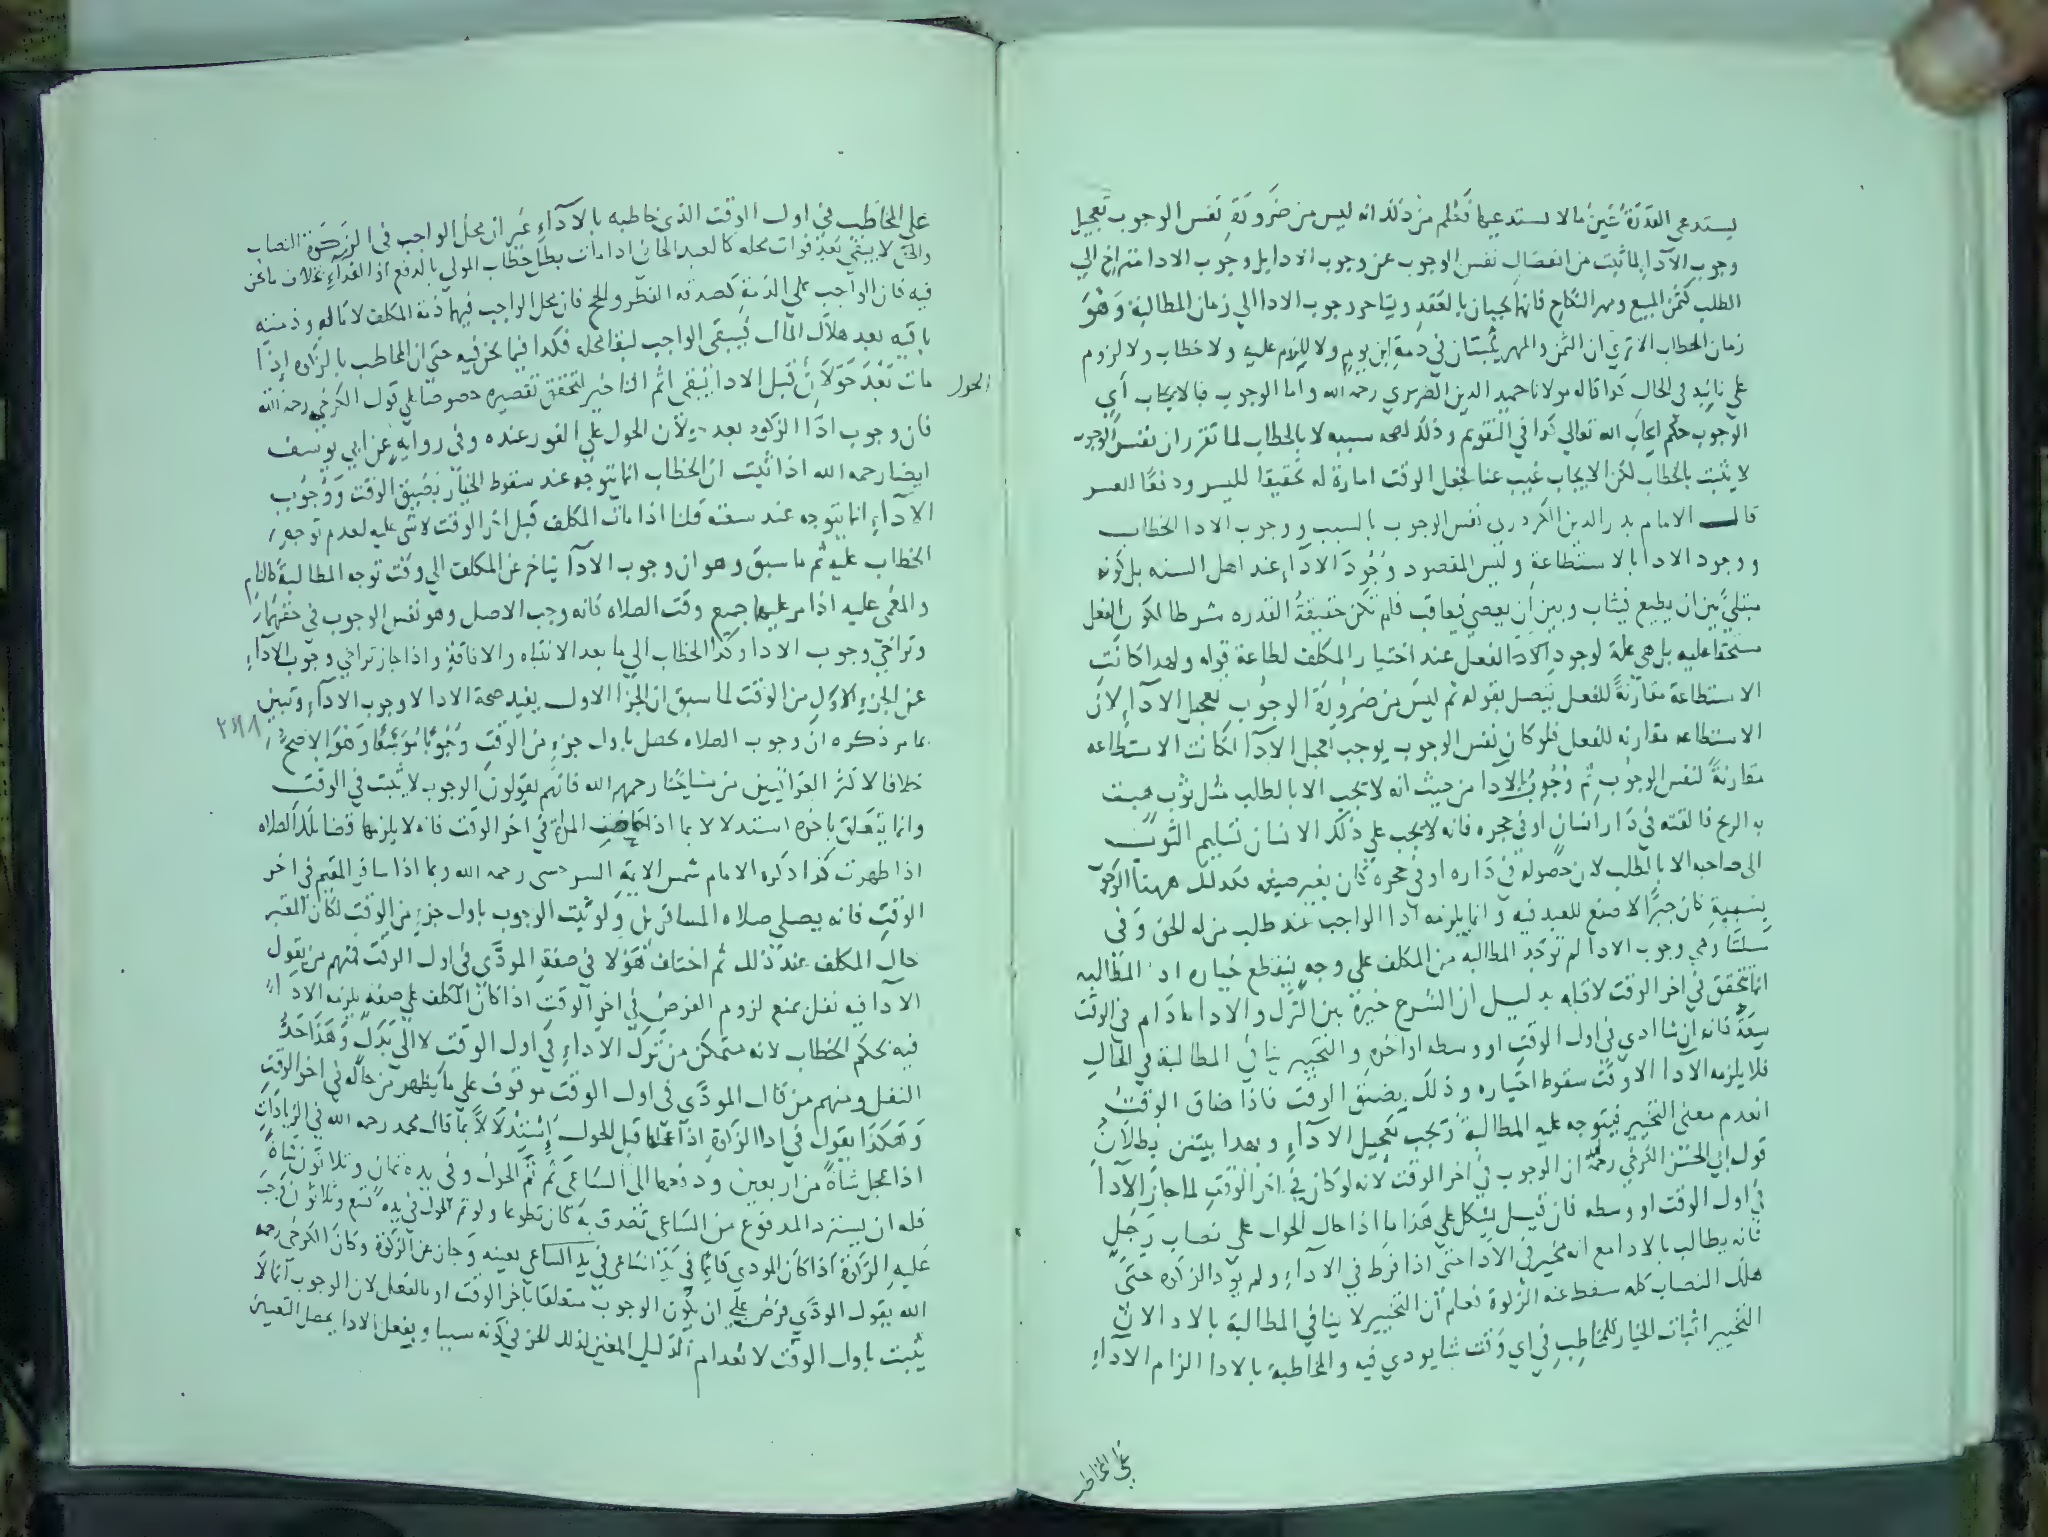 يستدعى القدرة عين ما لا يستدعيها فعلم من ذلك انه ليس من ضرورة نفس الوجوب تعجيل
وجوب الآدا لما ثبت من انفصال نفس الوجوب عن وجوب الادا بل وجوب الادا متراخ الي
الطلب كثمن المبيع ومهر النكاح فانهما يجبان بالعقد ويتاخر وجوب الادا الي زمان المطالبة وهو
زمان الخطاب الا تري ان الثمن والمهر يثبتان في ذمة ابن يوم ولا يلزم عليه ولا خطاب ولا لزوم
علي نائبه في الحال كذا قاله مولانا حميد الدين الضرير رحمه الله واما الوجوب فبالايجاب اي
الوجوب حكم ايجاب الله تعالي كذا في التقويم وذلك لصحه سببه لا بالخطاب لما تقرر ان نفس الوجوب
لا يثبت بالخطاب لكن الايجاب غيب عنا فجعل الوقت امارة له تحقيقا لليسر ودفعا للعسر
قال الامام بدر الدين الكردري نفس الوجوب بالسبب ووجوب الادا بالخطاب
ووجود الادا بالاستطاعة وليس المقصود وجود الاداء عند اهل السنه بل كونه
مبتلي بين ان يطيع فيثاب وبين ان يعصي فيعاقب فلم تكن حقيقة القدره شرطا لكون الفعل
مستحقا عليه بل هي علة لوجود الادا الفعل عند اختيار المكلف لطاعة قوله ولهذا كانت
الاستطاعة مقارنة للفعل يتصل بقوله ثم ليس من ضرورة الوجوب تعجيل الادآ لان
الاستطاعه مقارنه للفعل فلو كان نفس الوجوب يوجب تعجيل الادآ لكانت الاستطاعه
مقارنة لنفس الوجوب ثم وجوب الادا من حيث انه لا يجب الا بالطلب مثل ثوب هبت
به الريح فالقته في دار انسان او في حجره فانه لا يجب علي ذلك الانسان تسليم الثوب
الى صاحبه الا بالطلب لان حصوله في داره او في حجره كان بغير صنعه فكذلك ههنا الوجوب
بسببه كان جبرا لا صنع للعبد فيه وانما يلزمه ادا الواجب عند طلب من له الحق وفي
مسئلتنا وهي وجوب الادا لم توجد المطالبه من المكلف علي وجه ينقطع خياره اذ المطالبه
انما تتحقق في اخر الوقت لا قبله بدليل ان الشرع خيره بين الترك والادا ما دام في الوقت
سعة فانه ان شا ادي في اول الوقت او وسطه او اخره والتخيير ينافي المطالبة في الحال
فلا يلزمه الآدا الا وقت سقوط اختياره وذلك بضيق الوقت فاذا ضاق الوقت
انعدم معنى التخيير فيتوجه عليه المطالبة وتجب تعجيل الادآء وبهذا يتبين بطلان
قول ابي الحسن الكرخي رحمه الله ان الوجوب في اخر الوقت لانه لو كان في اخر الوقت لما جاز الآدا
في اول الوقت او وسطه فان قيل يشكل علي هذا ما اذا حال الحول علي نصاب رجل
فانه يطالب بالادا مع انه مخير في الادا حتى اذا فرط في الادآء ولم يود الزكاه حتى
هلك النصاب كله سقط عنه الزكوة فعلم ان التخيير لا ينافي المطالبة بالادا لان
التخيير اثبات الخيار للمخاطب في اي وقت شا يودي فيه والمخاطبة بالادا الزام الادآء
علي المخاطب
علي المخاطب في اول الوقت الذي خاطبه بالادآء غير ان محل الواجب في الزكوة النصاب
والحق لا يبقي بعد فوات محله كالعبد الجاني اذا مات بطل خطاب المولي بالدفع او الفدآء بخلاف ما نحن
فيه فان الواجب علي الذمة كصدقه الفطر والحج فان محل الواجب فيهما ذمة المكلف لا ماله وذمته
باقيه بعد هلاك المال فيبقي الواجب لبقا محله فكذا فيما نحن فيه حتى ان المخاطب بالزكاه اذا
مات بعد حولان الحول قبل الادا يبقي اثم التاخير لتحقق تقصيره خصوصا علي قول الكرخي رحمه الله
فان وجوب ادا الزكوه بعد حولان الحول علي الفور عنده وفي رواية عن ابي يوسف
ايضا رحمه الله اذا ثبت ان الخطاب انما يتوجه عند سقوط الخيار بضيق الوقت ووجوب
الادآء انما يتوجه عند سعته قلنا اذا مات المكلف قبل اخر الوقت لا شي عليه لعدم توجه
الخطاب عليه ثم ما سبق وهو ان وجوب الادآ يتاخر عن المكلف الي وقت توجه المطالبة كالنايم
والمغمي عليه اذا مر عليهما جميع وقت الصلاه فانه وجب الاصل وهو نفس الوجوب في حقهما
وتراخي وجوب الادا وكذا الخطاب الي ما بعد الانتباه والافاقة واذا جاز تراخي وجوب الادآء
عن الجزء الاول من الوقت لما سبق ان الجزا الاول يفيد صحة الادا لا وجوب الادآء وتبين
بما مر ذكره ان وجوب الصلاه يحصل باول جزء من الوقت وجوبا موسعا وهو الاصح
٢٩٨
خلافا لاكثر العراقيين من مشايخنا رحمهم الله فانهم يقولون الوجوب لا يثبت في الوقت
وانما يتعلق باخره استدلالا بما اذا حاضت المراة في اخر الوقت فانه لا يلزمها قضا تلك الصلاه
اذا طهرت كذا ذكره الامام شمس الايمة السرخسي رحمه الله وبما اذا سافر المقيم في اخر
الوقت فانه يصلي صلاه المسافرين ولو ثبت الوجوب باول جزء من الوقت لكان المعتبر
حال المكلف عند ذلك ثم اختلف هولا في صفة المودي في اول الوقت فمنهم من يقول
الادآ فيه نفل يمنع لزوم الفرض في اخر الوقت اذا كان المكلف علي صفة يلزمه الادا
فيه بحكم الخطاب لانه متمكن من ترك الاداء في اول الوقت لا الي بدل وهذا حد
النفل ومنهم من قال المودي في اول الوقت موقوف علي ما يظهر من حاله في اخر الوقت
وهكذا يقول في ادا الزكاة اذا عجلها قبل الحول استدلالا بما قال محمد رحمه الله في الزيادات
اذا عجل شاة من اربعين ودفعها الى الساعي ثم تم الحول وفي يده ثمان وثلاثون شاة
فله ان يسترد المدفوع من الساعي وان تصدق به كان تطوعا ولو تم الحول وفي يده تسع وثلاثون وجب
عليه الزكاة اذا كان المودي قائما في يد الساعي بعينه وجاز عن الزكوة وكان الكرخي رحمه
الله يقول المودي فرض علي ان يكون الوجوب متعلقا بآخر الوقت او بالفعل لان الوجوب انما لا
يثبت باول الوقت لانعدام الدليل المعين لذلك الجز في كونه سببا وبفعل الادا يحصل التعيين